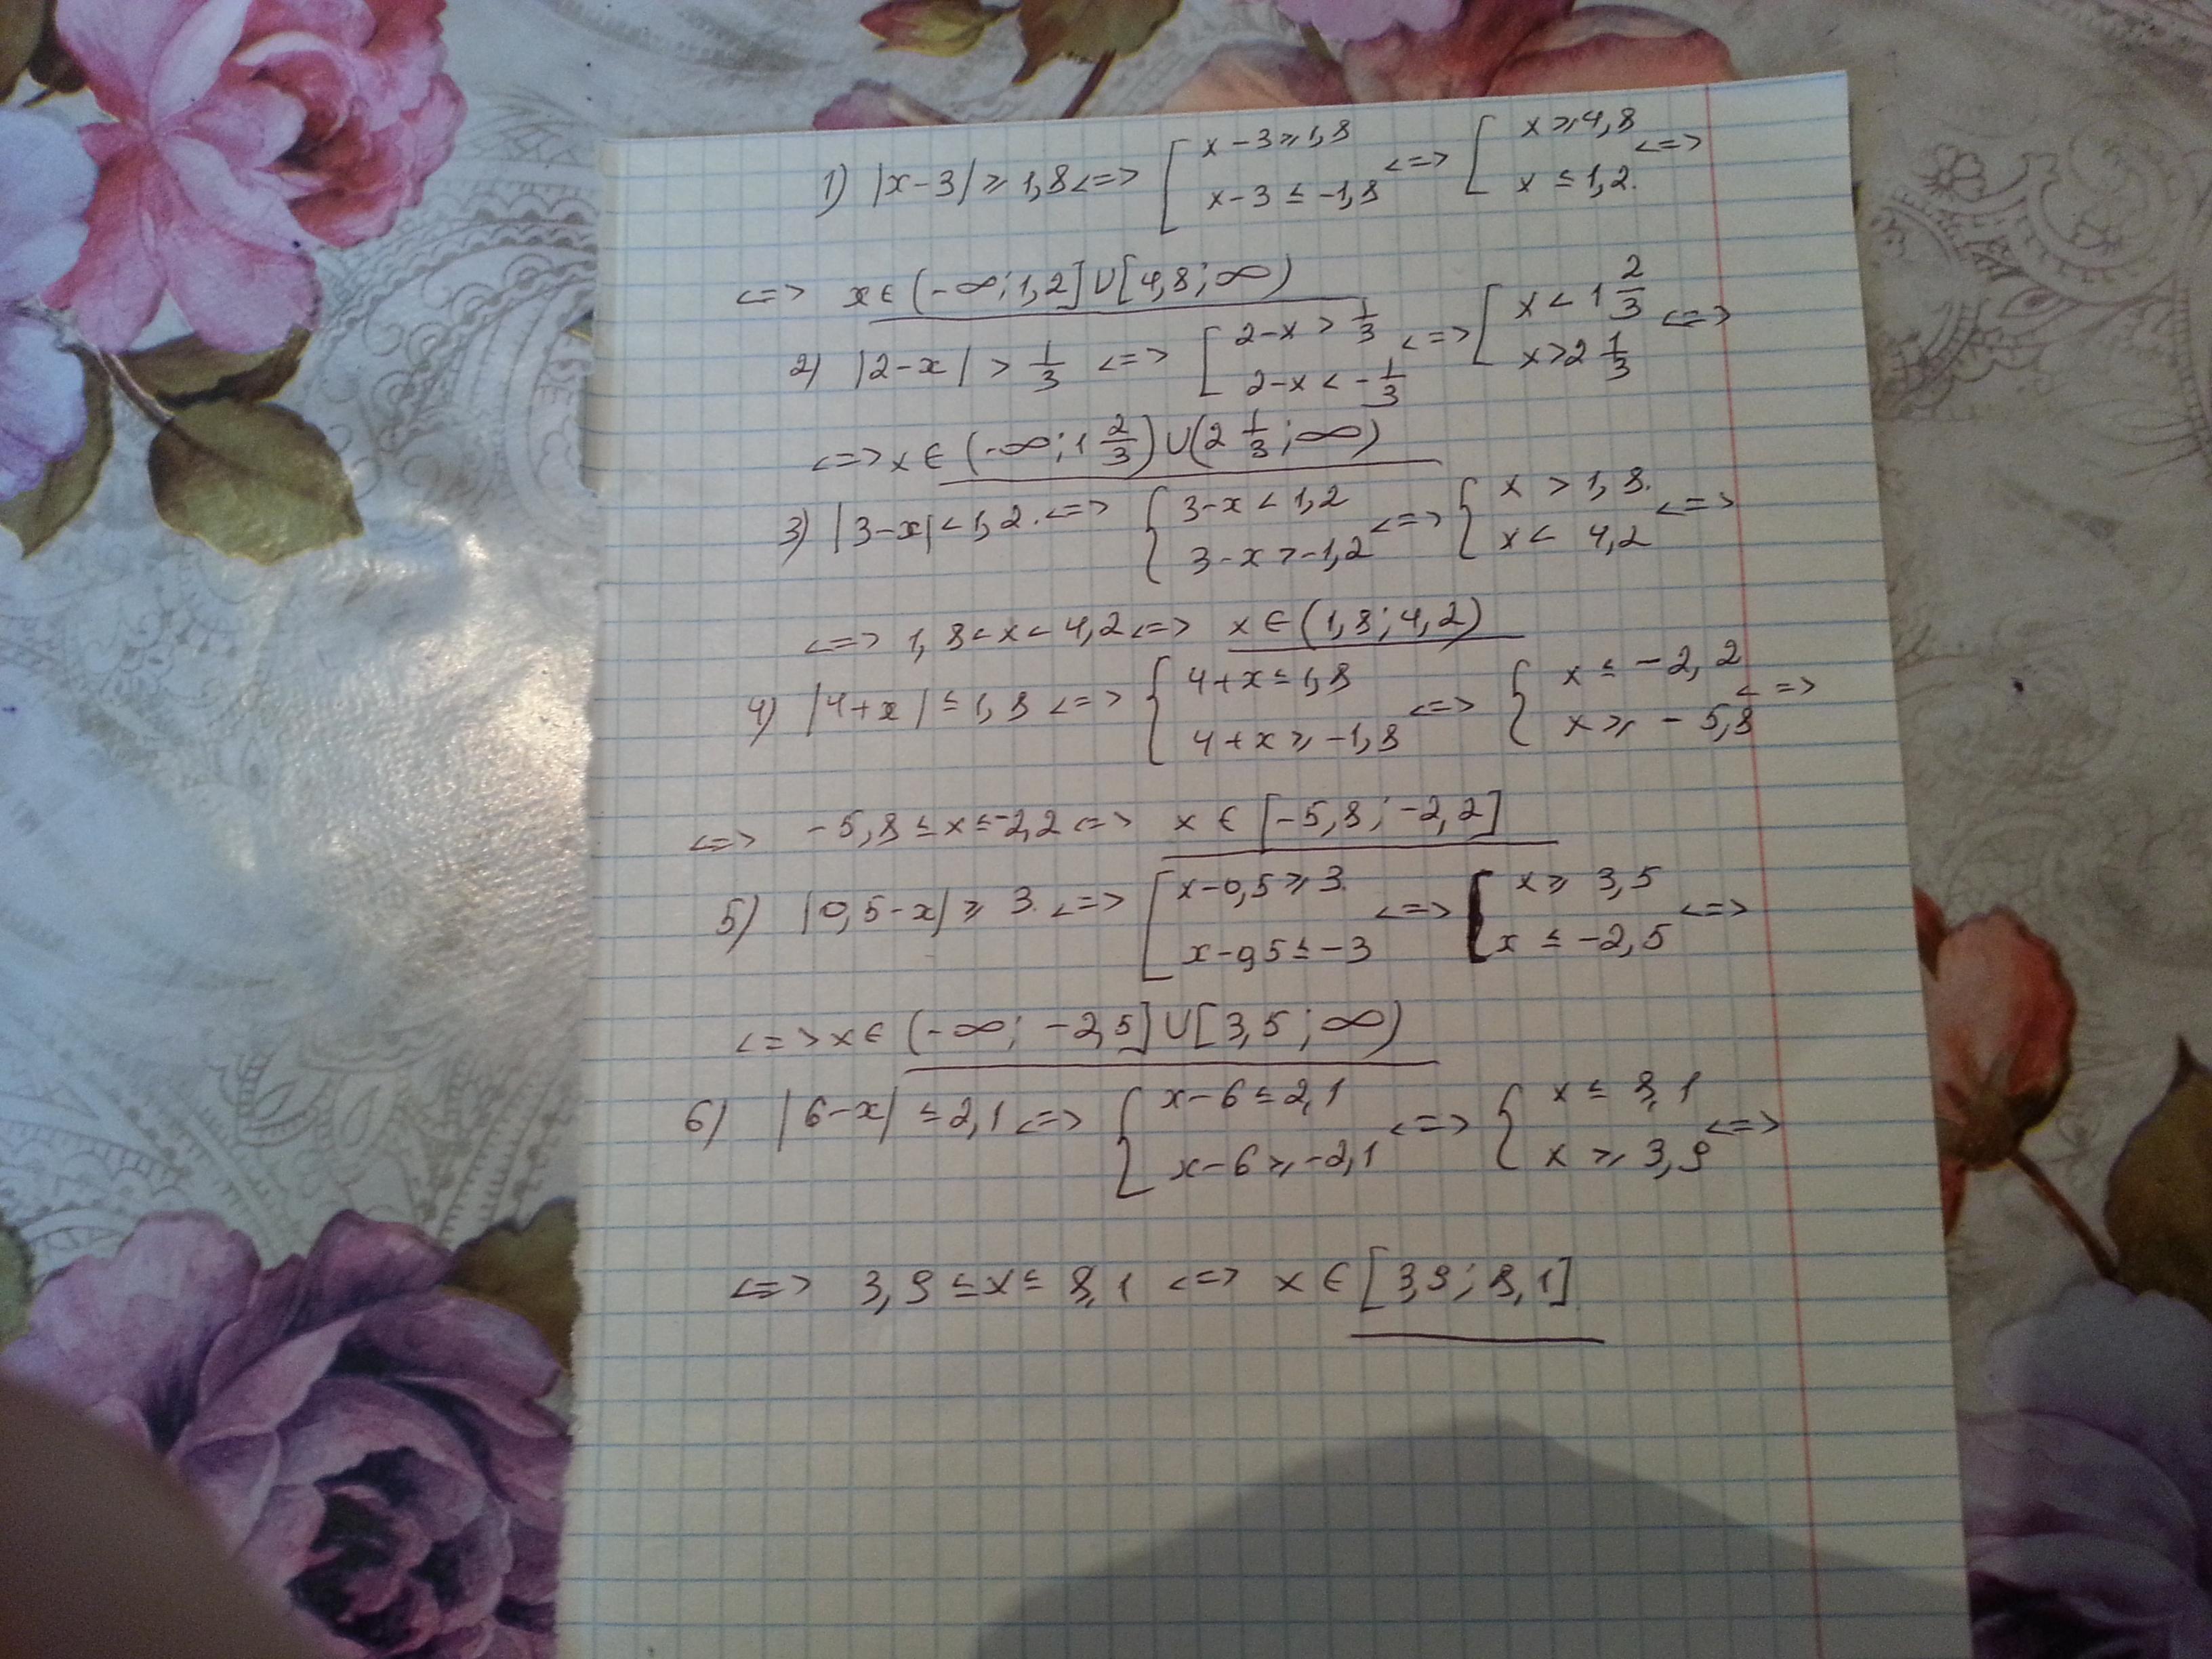 1) |x-3| ≥ 1,8 <=> [ x-3 ≥ 1,8 x-3 ≤ -1,8 <=> [ x ≥ 4,8 x ≤ 1,2. <=>
<=> x ∈ (-∞; 1,2] ∪ [4,8; ∞)
2) |2-x| > 1/3 <=> [ 2-x > 1/3 2-x < -1/3 <=> [ x < 1 2/3 x > 2 1/3 <=>
<=> x ∈ (-∞; 1 2/3) ∪ (2 1/3; ∞)
3) |3-x| < 1,2. <=> { 3-x < 1,2 3-x > -1,2 <=> { x > 1,8. x < 4,2 <=>
<=> 1,8 < x < 4,2 <=> x ∈ (1,8; 4,2)
4) |4+x| ≤ 1,8 <=> { 4+x ≤ 1,8 4+x ≥ -1,8 <=> { x ≤ -2,2 x ≥ -5,8 <=>
<=> -5,8 ≤ x ≤ -2,2 <=> x ∈ [-5,8; -2,2]
5) |0,5-x| ≥ 3. <=> [ x-0,5 ≥ 3. x-0,5 ≤ -3 <=> [ x ≥ 3,5 x ≤ -2,5 <=>
<=> x ∈ (-∞; -2,5] ∪ [3,5; ∞)
6) |6-x| ≤ 2,1 <=> { x-6 ≤ 2,1 x-6 ≥ -2,1 <=> { x ≤ 8,1 x ≥ 3,9 <=>
<=> 3,9 ≤ x ≤ 8,1 <=> x ∈ [3,9; 8,1]